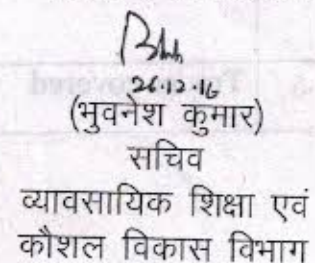 26.12.16
(भुवनेश कुमार)
सचिव
व्यावसायिक शिक्षा एवं
कौशल विकास विभाग